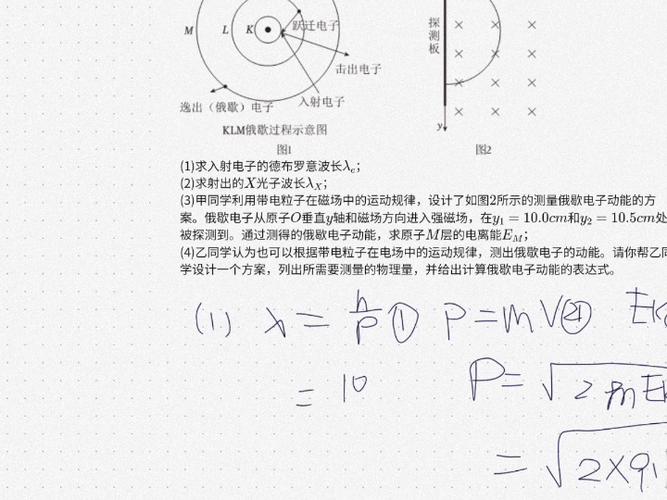 M L K 跃迁电子
击出电子
入射电子
逸出（俄歇）电子
KLM俄歇过程示意图
图1
探测板
× × ×
× × ×
× × ×
× × ×
y
图2
(1)求入射电子的德布罗意波长λₑ；
(2)求射出的X光子波长λ_X；
(3)甲同学利用带电粒子在磁场中的运动规律，设计了如图2所示的测量俄歇电子动能的方
案。俄歇电子从原子O垂直y轴和磁场方向进入强磁场，在y₁ = 10.0cm和y₂ = 10.5cm处
被探测到。通过测得的俄歇电子动能，求原子M层的电离能E_M；
(4)乙同学认为也可以根据带电粒子在电场中的运动规律，测出俄歇电子的动能。请你帮乙同
学设计一个方案，列出所需要测量的物理量，并给出计算俄歇电子动能的表达式。
(1.) λ = h/p ① P = mV ② Ek
= 10 P = √2mEk
= √2×9.1